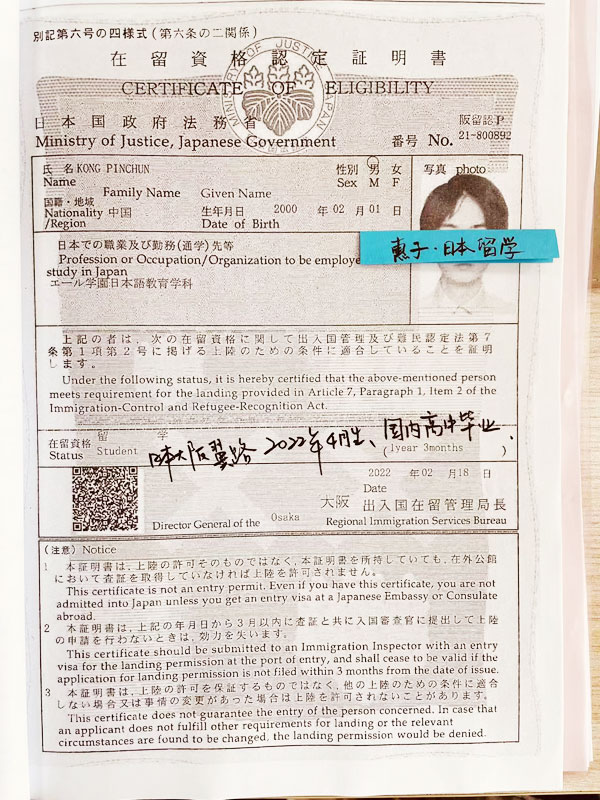 別記第六号の四様式(第六条の二関係)
在留資格認定証明書
CERTIFICATE OF ELIGIBILITY
MINISTRY OF JUSTICE, JAPAN
日本国政府法務省
Ministry of Justice, Japanese Government
阪留認P
番号 No. 21-800892
氏 名 KONG PINCHUN
Name
Family Name Given Name
性別 男 女
Sex M F
写真 photo
国籍・地域
Nationality 中国
/Region
生年月日 2000 年 02 月 01 日
Date of Birth
日本での職業及び勤務(通学)先等
Profession or Occupation/Organization to be employe
study in Japan
エール学園日本語教育学科
惠子·日本留学
上記の者は、次の在留資格に関して出入国管理及び難民認定法第7
条第1項第2号に掲げる上陸のための条件に適合していることを証明
します。
Under the following status, it is hereby certified that the above-mentioned person
meets requirement for the landing provided in Article 7, Paragraph 1, Item 2 of the
Immigration-Control and Refugee-Recognition Act.
在留資格 留 学
Status Student
(1year 3months )
日本大阪翼路 2022年4月生、国内高中毕业、
2022 年 02 月 18 日
Date
大阪 出入国在留管理局長
Director General of the Osaka Regional Immigration Services Bureau
(注意) Notice
1 本証明書は、上陸の許可そのものではなく、本証明書を所持していても、在外公館
において査証を取得していなければ上陸を許可されません。
This certificate is not an entry permit. Even if you have this certificate, you are not
admitted into Japan unless you get an entry visa at a Japanese Embassy or Consulate
abroad.
2 本証明書は、上記の年月日から3月以内に査証と共に入国審査官に提出して上陸
の申請を行わないときは、効力を失います。
This certificate should be submitted to an Immigration Inspector with an entry
visa for the landing permission at the port of entry, and shall cease to be valid if the
application for landing permission is not filed within 3 months from the date of issue.
3 本証明書は、上陸の許可を保証するものではなく、他の上陸のための条件に適合
しない場合又は事情の変更があった場合は上陸を許可されないことがあります。
This certificate does not guarantee the entry of the person concerned. In case that
an applicant does not fulfill other requirements for landing or the relevant
circumstances are found to be changed, the landing permission would be denied.